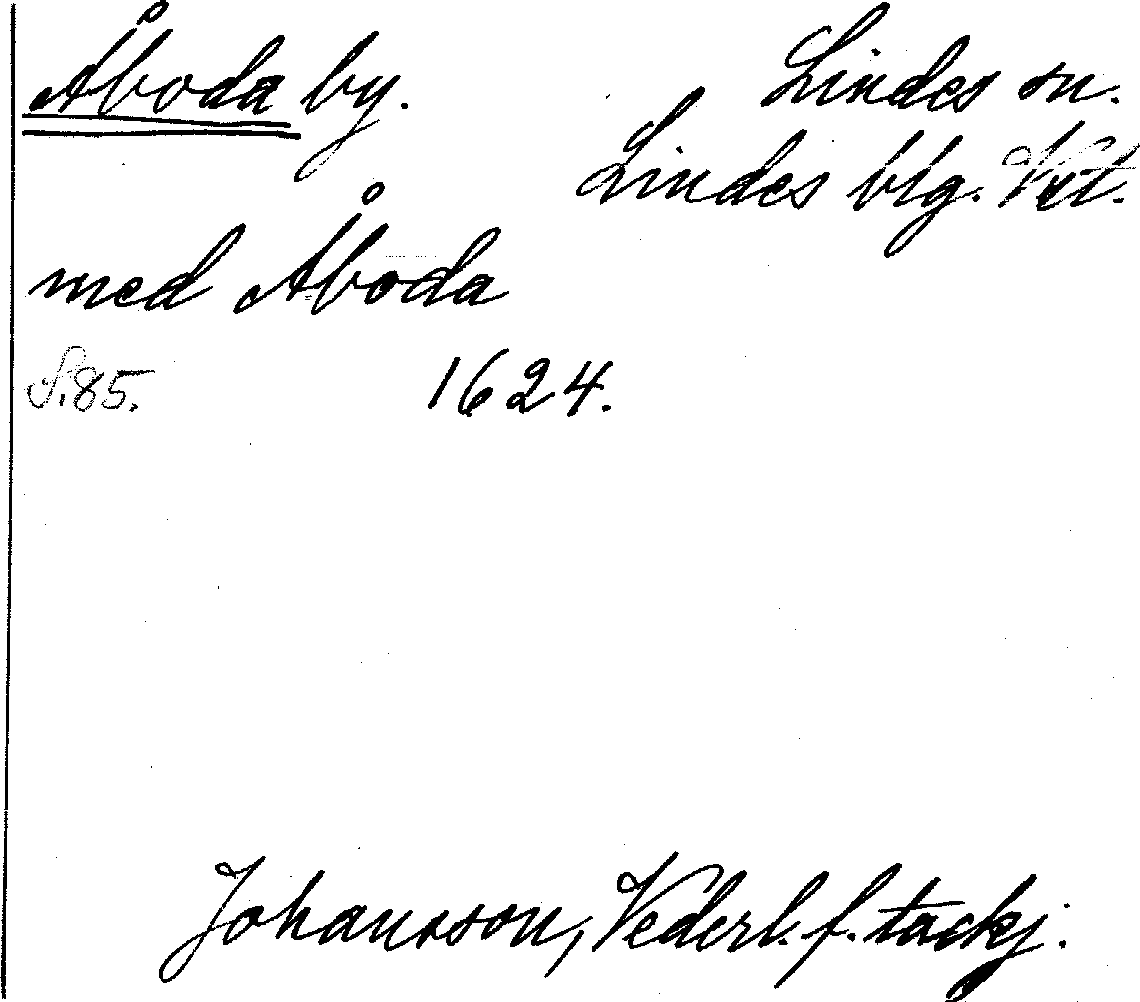 Åboda by. Lindes sn.
Lindes blg. Vstl.
med Åboda
S.85. 1624.
Johansson, Vederl. f. tackj.